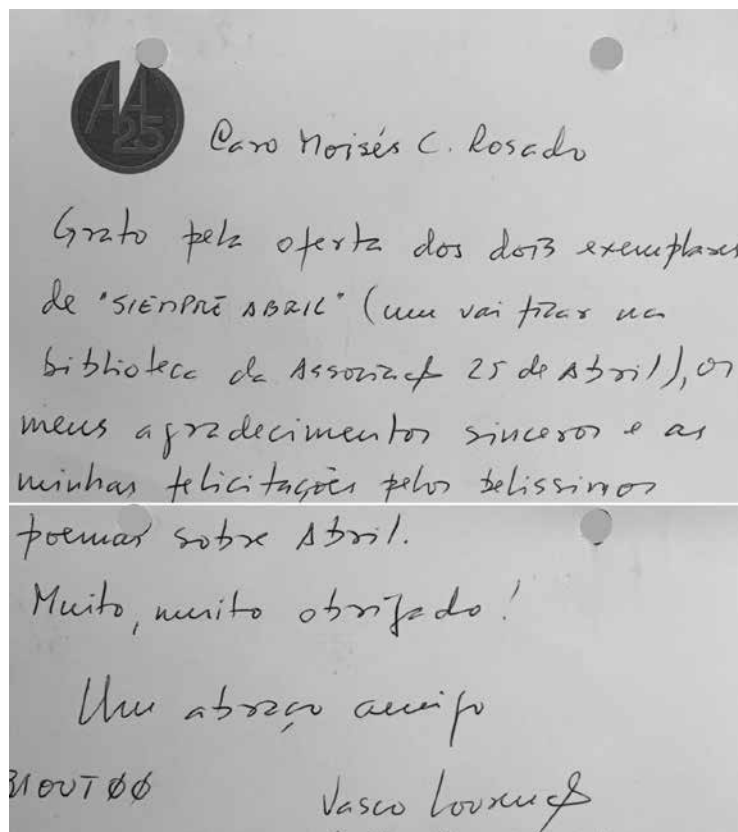 AA
25
Caro Moisés C. Rosado
Grato pela oferta dos dois exemplares
de "SIEMPRE ABRIL" (um vai ficar na
biblioteca da Associação 25 de Abril), os
meus agradecimentos sinceros e as
minhas felicitações pelos belissimos
poemas sobre Abril.
Muito, muito obrigado!
Um abraço amigo
31OUT00
Vasco Lourenço